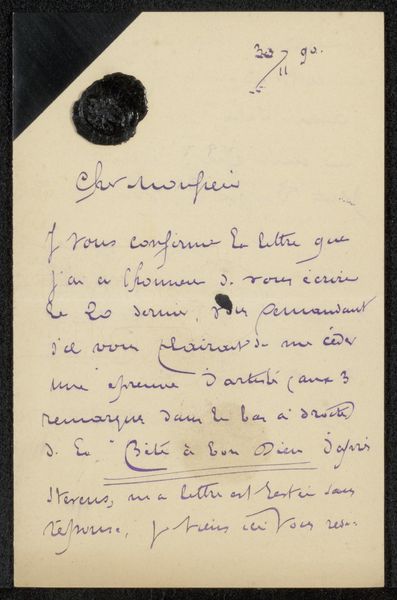 30/11 90.
Cher Monsieur
Je vous confirme la lettre que
j'ai eu l'honneur de vous écrire
le 20 dernier, vous demandant
s'il vous plairait de me céder
une épreuve d'artiste (aux 3
remarques dans le bas à droite)
de la "Bête à bon Dieu" d'après
Stevens, ma lettre est restée sans
réponse. Je viens ici vous